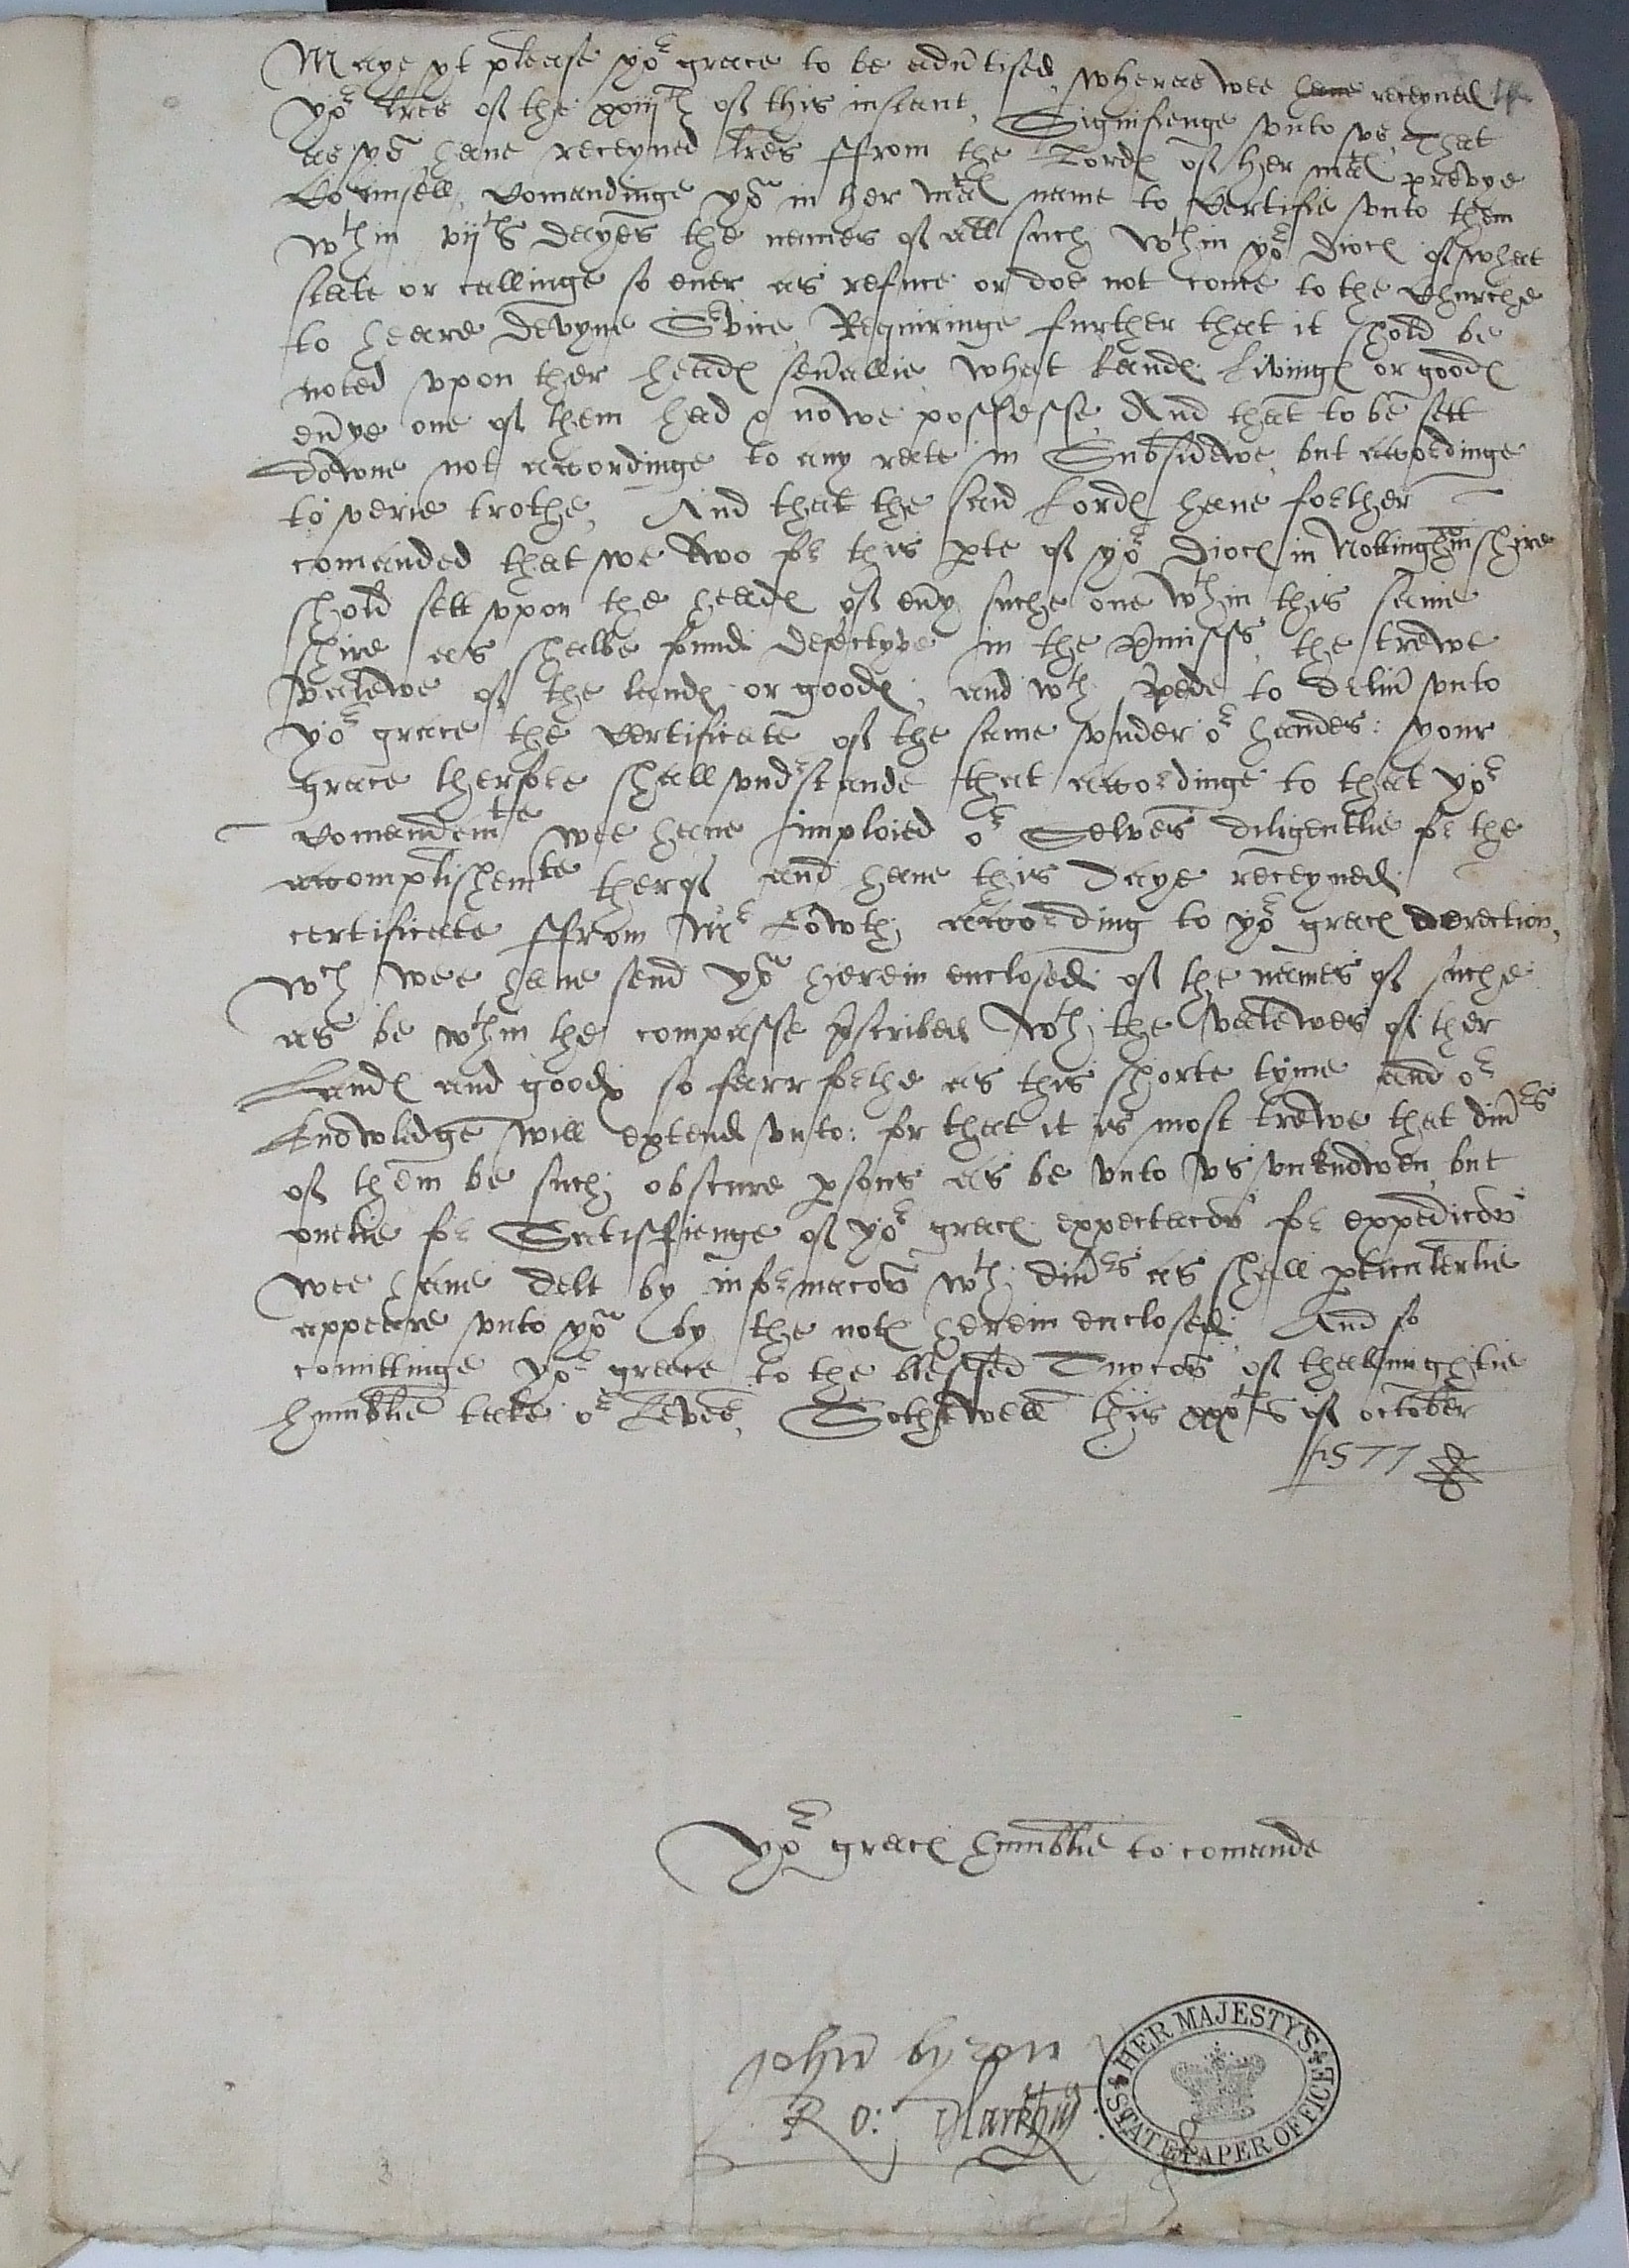 Maye yt please yor grace to be adutised, wheras wee haue receyued
yor lres of the xxiijth of this instant, Signifienge vnto vs, That
as ye haue receyued lres ffrom the Lordes of her mates prevye
Counsell, Comandinge you in her mates name to Certifie vnto them
wthin vijth dayes the names of all such wthin yor dioces of what
state or callinge so euer as refuce or doe not come to the Churche
to heare devyne Svice, Requiringe further that it shold be
noted vpon ther heades seuallie, what landes Livinges or goodes
euye one of them had or nowe possesse, And that to be sett
downe not accordinge to any rate in Subsidewe, but accordinge
to verie trothe, And that the said Lordes haue forther
comanded that we two for this pte of yor dioces in Nottinghmshire
shold sett vpon the heades of euy suche one wthin this same
shire as shalbe found defectyve in the pmisses, the trewe
valewe of the landes or goodes, and wth spede to deliu vnto
yor grace the Certificate of the same vnder or handes: your
grace therfore shall vnderstande that accordinge to that yor
Comandemte wee haue imploied or Selves diligentlie for the
accomplishemte therof and haue this daye receyued
certificate ffrom Mr Lowth, according to yor graces derection,
wch wee haue send you herein enclosed of the names of suche
as be wthin the compasse pscribed wth the valewes of ther
Landes and goodes so farr forthe as this shorte tyme and or
knowledge will extend vnto: for that it is most trewe that diuers
of them be such obscure psons as be vnto vs vnknowen, but
onelie for Satisfienge of yor graces expectacon for expedicon
wee haue delt by informacon wth diuers as shall pticulerlie
appeare vnto you by the notes herein enclosed, And so
comittinge yor grace to the blessed Tuycon of thallmightie
humblie take or Leves, Sothewell this xxxth of october
1577
Yor graces humblie to comande
John byron
Ro: Markhm
HER MAJESTY'S STATE PAPER OFFICE